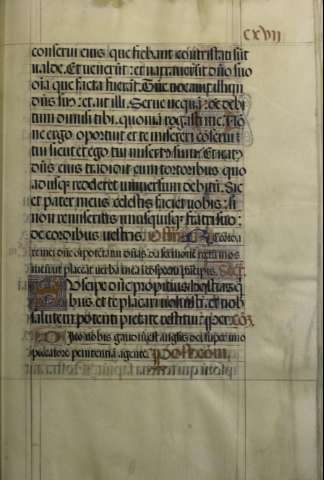 cxvii
conserui eius que fiebant contristati sut
valde. Et venerut: et narraverut dno suo
oia que facta fuerat. Tuc vocauit illu
dns suus: et ait illi. Serve nequa: oe debi
tum dimisi tibi: quonia rogasti me. No
ne ergo oportuit et te misereri coserui
tui sicut et ego tui misertus sum. Et irat
dns eius tradidit eum tortoribus quo
adusq redderet universum debitu. Sic
et pater meus celestis faciet vobis: si
non remiseritis unusquisq fratri suo:
de cordibus vestris.
ut placeat verba mea in cospectu principis. Secr.
Suscipe dne propitius hostias
bus et te placari voluisti: et nob
salutem potenti pietate restitui: per. Co.
Dico vobis gaudiu est angelis dei super uno
peccatore penitentia agente. Postcom.